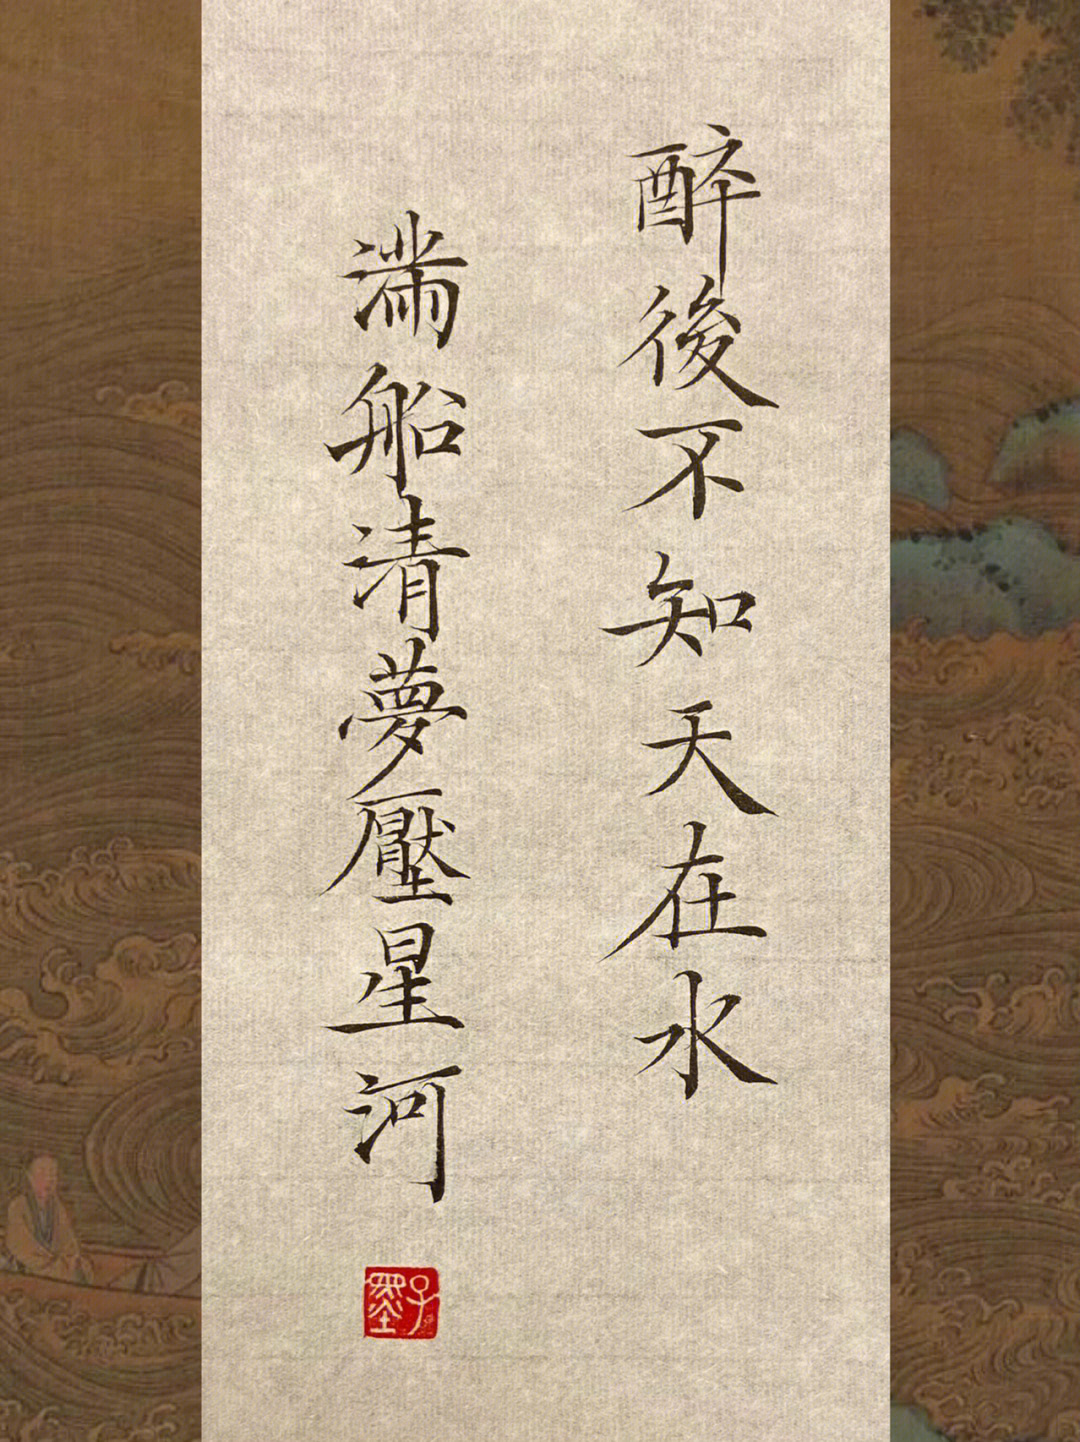 醉後不知天在水
滿船清夢壓星河
子墨